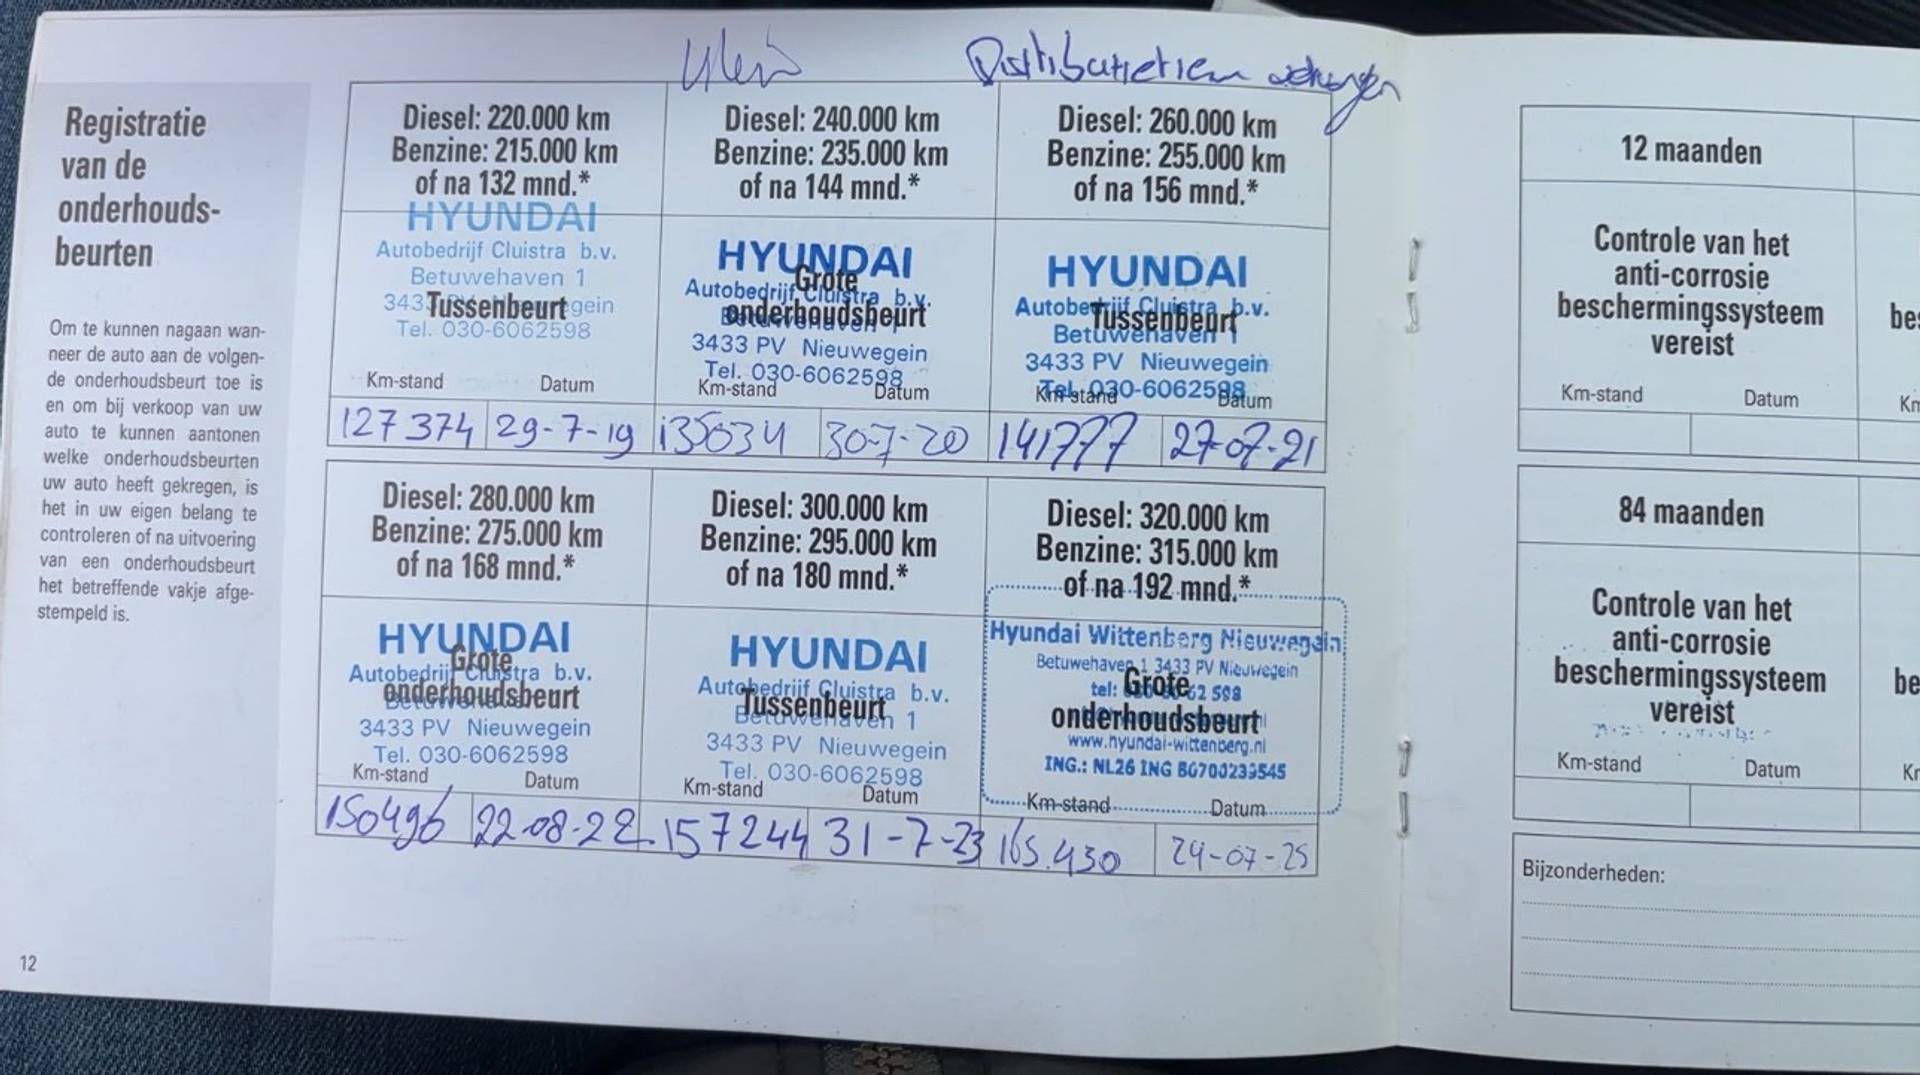 Registratie
van de
onderhouds-
beurten
Om te kunnen nagaan wan-
neer de auto aan de volgen-
de onderhoudsbeurt toe is
en om bij verkoop van uw
auto te kunnen aantonen
welke onderhoudsbeurten
uw auto heeft gekregen, is
het in uw eigen belang te
controleren of na uitvoering
van een onderhoudsbeurt
het betreffende vakje afge-
stempeld is.
12
Klein
Distributieriem
Diesel: 220.000 km
Benzine: 215.000 km
of na 132 mnd.*
HYUNDAI
Autobedrijf Cluistra b.v.
Betuwehaven 1
Tussenbeurt
Tel. 030-6062598
Km-stand Datum
127374 29-7-19
Diesel: 240.000 km
Benzine: 235.000 km
of na 144 mnd.*
HYUNDAI
Grote
Autobedrijf Cluistra b.v.
onderhoudsbeurt
3433 PV Nieuwegein
Tel. 030-6062598
Km-stand Datum
135034 30-7-20
Diesel: 260.000 km
Benzine: 255.000 km
of na 156 mnd.*
HYUNDAI
Autobedrijf Cluistra b.v.
Tussenbeurt
Betuwehaven 1
3433 PV Nieuwegein
Tel. 030-6062598
Km-stand Datum
141777 27-07-21
Diesel: 280.000 km
Benzine: 275.000 km
of na 168 mnd.*
HYUNDAI
Grote
Autobedrijf Cluistra b.v.
onderhoudsbeurt
3433 PV Nieuwegein
Tel. 030-6062598
Km-stand Datum
150496 22-08-22
Diesel: 300.000 km
Benzine: 295.000 km
of na 180 mnd.*
HYUNDAI
Autobedrijf Cluistra b.v.
Tussenbeurt
Betuwehaven 1
3433 PV Nieuwegein
Tel. 030-6062598
Km-stand Datum
157244 31-7-23
Diesel: 320.000 km
Benzine: 315.000 km
of na 192 mnd.*
Hyundai Wittenberg Nieuwegein
Betuwehaven 1 3433 PV Nieuwegein
Grote
onderhoudsbeurt
www.hyundai-wittenberg.nl
ING.: NL26 ING B0700239545
Km-stand Datum
165.430 24-07-25
12 maanden
Controle van het
anti-corrosie
beschermingssysteem
vereist
Km-stand Datum
84 maanden
Controle van het
anti-corrosie
beschermingssysteem
vereist
Km-stand Datum
Bijzonderheden: